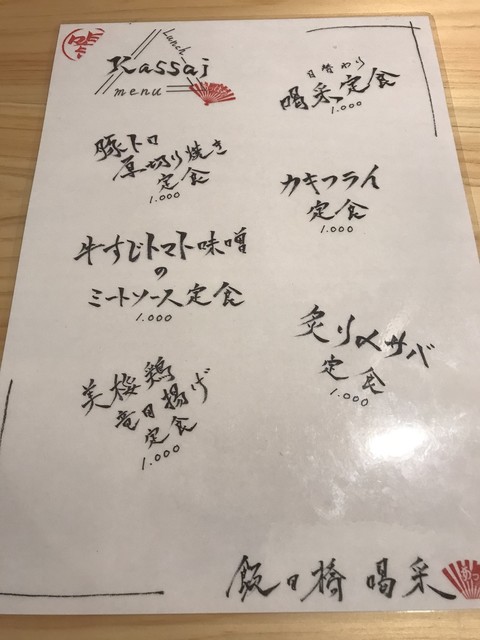 Lunch
Kassai
menu
日替わり
喝采定食
1.000
豚トロ
厚切り焼き
定食
1.000
カキフライ
定食
1.000
牛すじトマト味噌
の
ミートソース定食
1.000
炙り〆サバ
定食
1.000
美桜鶏
竜田揚げ
定食
1.000
飯田橋 喝采